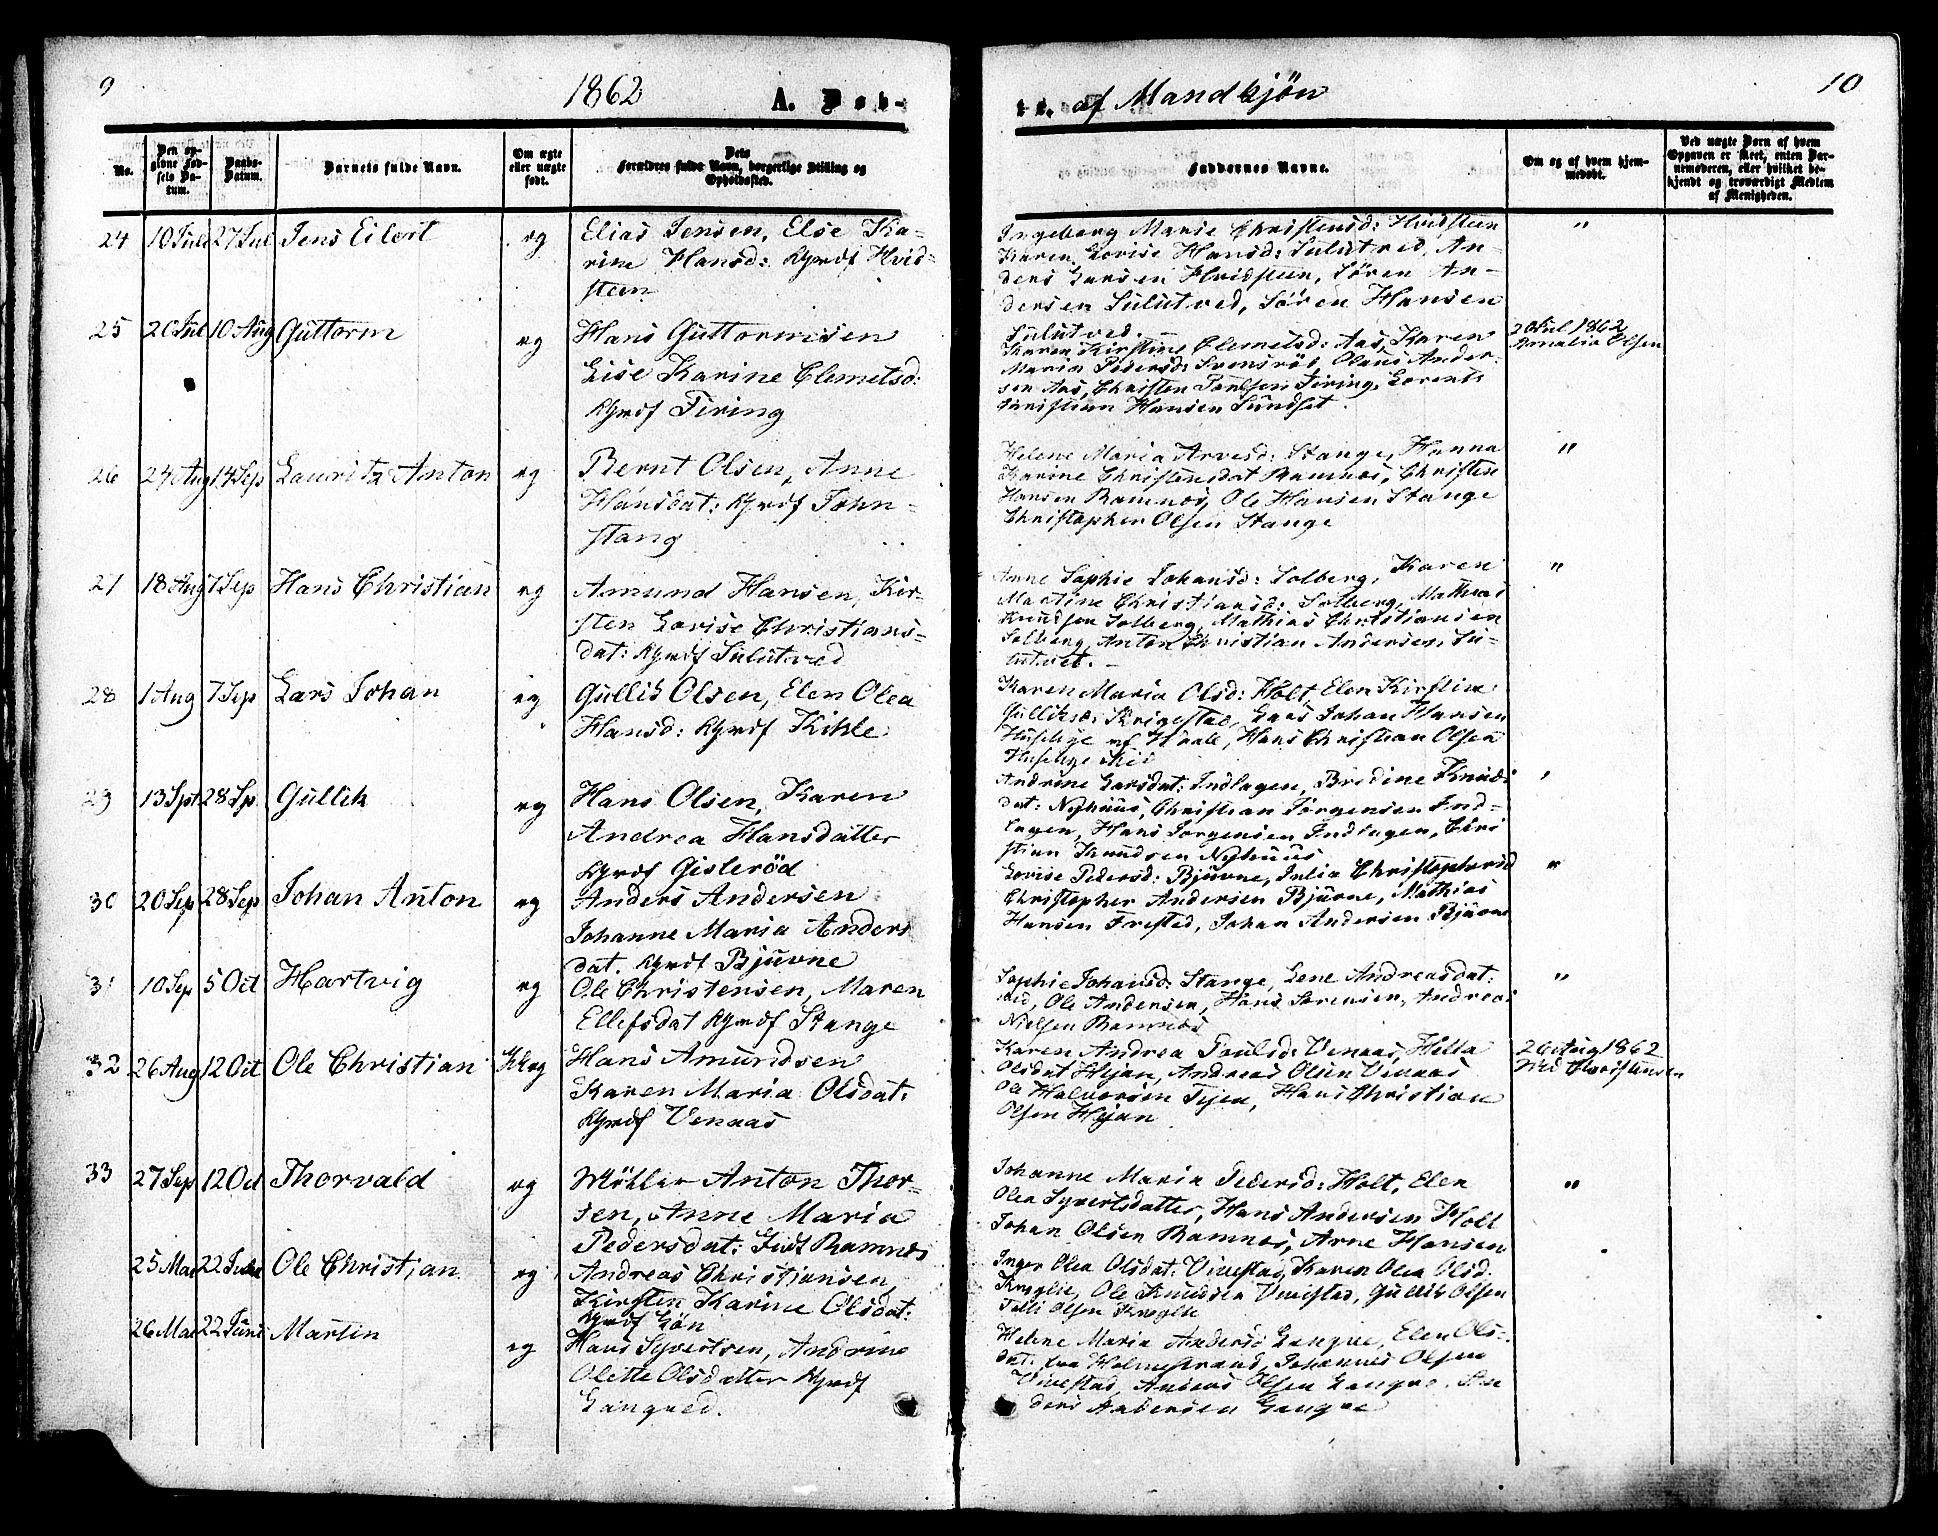 9
1862
A. Døb-
te. af Mandkjøn
10
No.
Den op-
givne Fød-
sels Da-
tum.
Daabs-
Datum.
Barnets fulde Navn.
Om ægte
eller uægte
født.
Dets
Forældres fulde Navn, borgerlige Stilling og
Opholdssted.
Faddernes Navne.
Om og af hvem hjem-
medøbt.
Ved uægte Barn af hvem
Opgaven er skeet, enten Bar-
nemoderen, eller hvilket be-
kjendt og troværdigt Medlem
af Menigheden.
24 10 Juli 27 Jul Jens Eilert eg
Elias Jensen, Else Ka-
rine Hansd: Gmdf Hvid-
steen
Ingeborg Marie Christensd: Hvidsteen
Karen Lovise Hansd: Sulutved, An-
ders Larsen Hvidsteen, Sören An-
dersen Sulutved, Sören Hansen
Sulutved. "
25 20 Jul 10 Aug Guttorm eg
Hans Guttormsen
Lise Karine Clemetsd:
Gmdf Firing
Karen Kirstine Clemetsd: Aas, Karen
Maria Pedersd: Svensröd, Olaus Ander-
sen Aas, Christen Paulsen Firing, Lorents
Christian Hansen Sundset.
20 Jul 1862
Amalia Olsen
26 24 Aug 14 Sep Lauritz Anton eg
Bernt Olsen, Anne
Hansdat: Gmdf John-
stang
Helene Maria Arvesd: Stange, Hanna
Karine Christensdat Ramnæs, Christen
Hansen Ramnæs, Ole Hansen Stange
Christopher Olsen Stange
"
27 18 Aug 7 Sep Hans Christian eg
Amund Hansen, Kir-
sten Lovise Christians-
dat: Gmdf Sulutved
Anne Sophie Johansd: Solberg, Karen
Martine Christiansd: Solberg, Mathias
Knudsen Solberg, Mathias Christiansen
Solberg, Anton Christian Andersen, Su-
lutvet. -
"
28 1 Aug 7 Sep Lars Johan eg
Gullik Olsen, Elen Olea
Hansd: Gmdf Kihle
Karen Maria Olsd: Holt, Elen Kirstine
Gulliksd: Lars Johan Hansen
Husebye af Hans Christian Olsen
Husebye
29 13 Spt 28 Sp. Gullik eg
Hans Olsen, Karen
Andrea Hansdatter
Gmdf Gisleröd
Andrine Larsdat: Indlagen, Bredine Knuds
dat: Nyhuus, Christian Jörgensen Ind-
lagen, Hans Jorgensen Indlagen, Chri
stian Knudsen Nyhuus
30 20 Sep 28 Sep Johan Anton eg
Anders Andersen
Johanne Maria Anders
dat. Gmdf Bjuvne
Lovise Pedersd: Bjuvne, Julia Christophersd
Christopher Andersen Bjuvne, Mathias
Hansen Frested, Johan Andersen Bjuvne
"
31 10 Sep 5 Oct Hartvig eg
Ole Christensen, Maren
Ellefsdat Gmdf Stange
Sophie Johansd: Stange, Lene Andreasdat:
Ole Andersen, Hans Sörensen, Andreas
Nielsen Ramnæs
"
32 26 Aug 12 Oct Ole Christian Kl eg
Hans Amundsen
Karen Maria Olsdat:
Gmdf Venaas
Karen Andrea Poulsd: Venaas, Hella
Olsdat Hejan, Andreas Olsen Venaas
Ole Halvorsen Hans Christian
Olsen Hejan
26 Aug 1862
Christensen
33 27 Sep 12 Oct Thorvald eg
Möller Anton Thor-
sen, Anne Maria
Pedersdat: Ramnæs
Johanne Maria Pedersd: Holt, Elen
Olea Syvertsdatter, Hans Andersen Holt
Johan Olsen Ramnæs, Arne Hansen
"
25 Mai 22 Juni Ole Christian eg
Andreas Christiansen,
Kirsten Karine Olsdat:
Gmdf Lön
Inger Olea Olsdat: Vivestad, Karen Olea Olsd.
Kroglie, Ole Knudsen Vivestad, Gullik Olsen
Olsen Kroglie
26 Mai 22 Juni Martin eg
Hans Syvertsen, Andrine
Olette Olsdatter Gmdf
Langved.
Helene Maria Andersd Langve, Elen Ols-
dat: fra Holmestrand, Johannes Olsen
Vivestad, Anders Olsen Langve. An
ders Andersen Langve